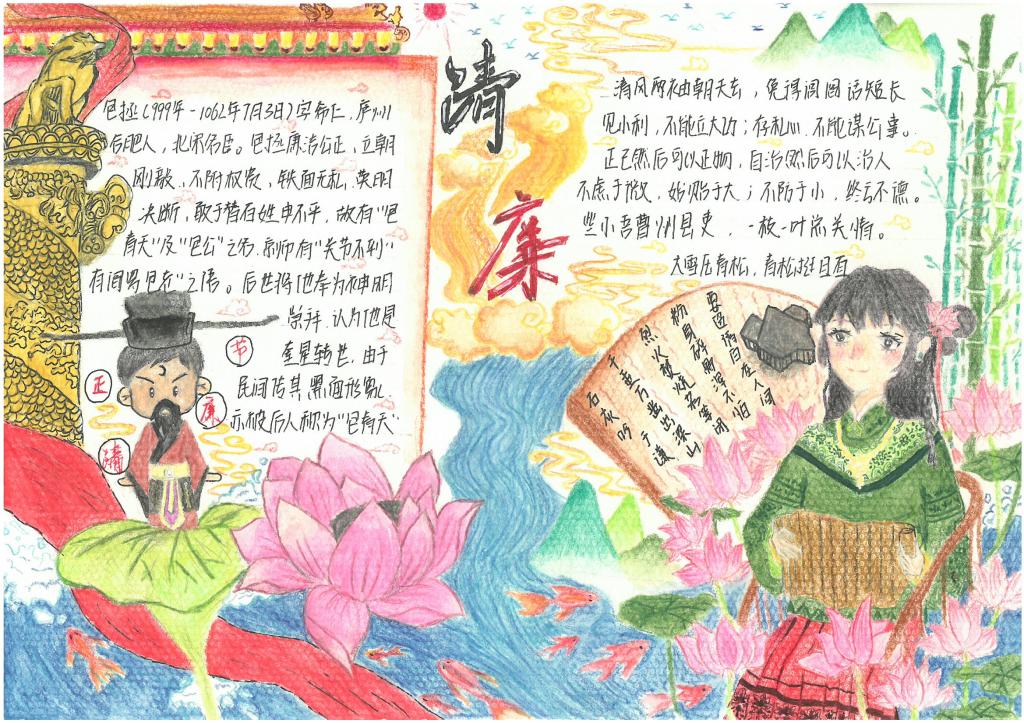 清
廉
包拯(999年-1062年7月3日)字希仁,庐州
合肥人,北宋名臣。包拯廉洁公正、立朝
刚毅、不附权贵,铁面无私,英明
决断,敢于替百姓申不平,故有"包
青天"及"包公"之名,京师有"关节不到"
有阎罗包老"之语。后世将他奉为神明
崇拜,认为他是
奎星转世,由于
民间传其黑面形象,
亦被后人称为"包青天"
正
节
廉
清
清风两袖朝天去,免得闾阎话短长
见小利,不能立大功;存私心,不能谋公事。
正己然后可以正物,自治然后可以治人
不虑于微,始贻于大;不防于小,终亏不德。
些小吾曹州县吏,一枝一叶总关情。
大雪压青松,青松挺且直
石灰吟
于谦
千锤万凿出深山
烈火焚烧若等闲
粉身碎骨浑不怕
要留清白在人间